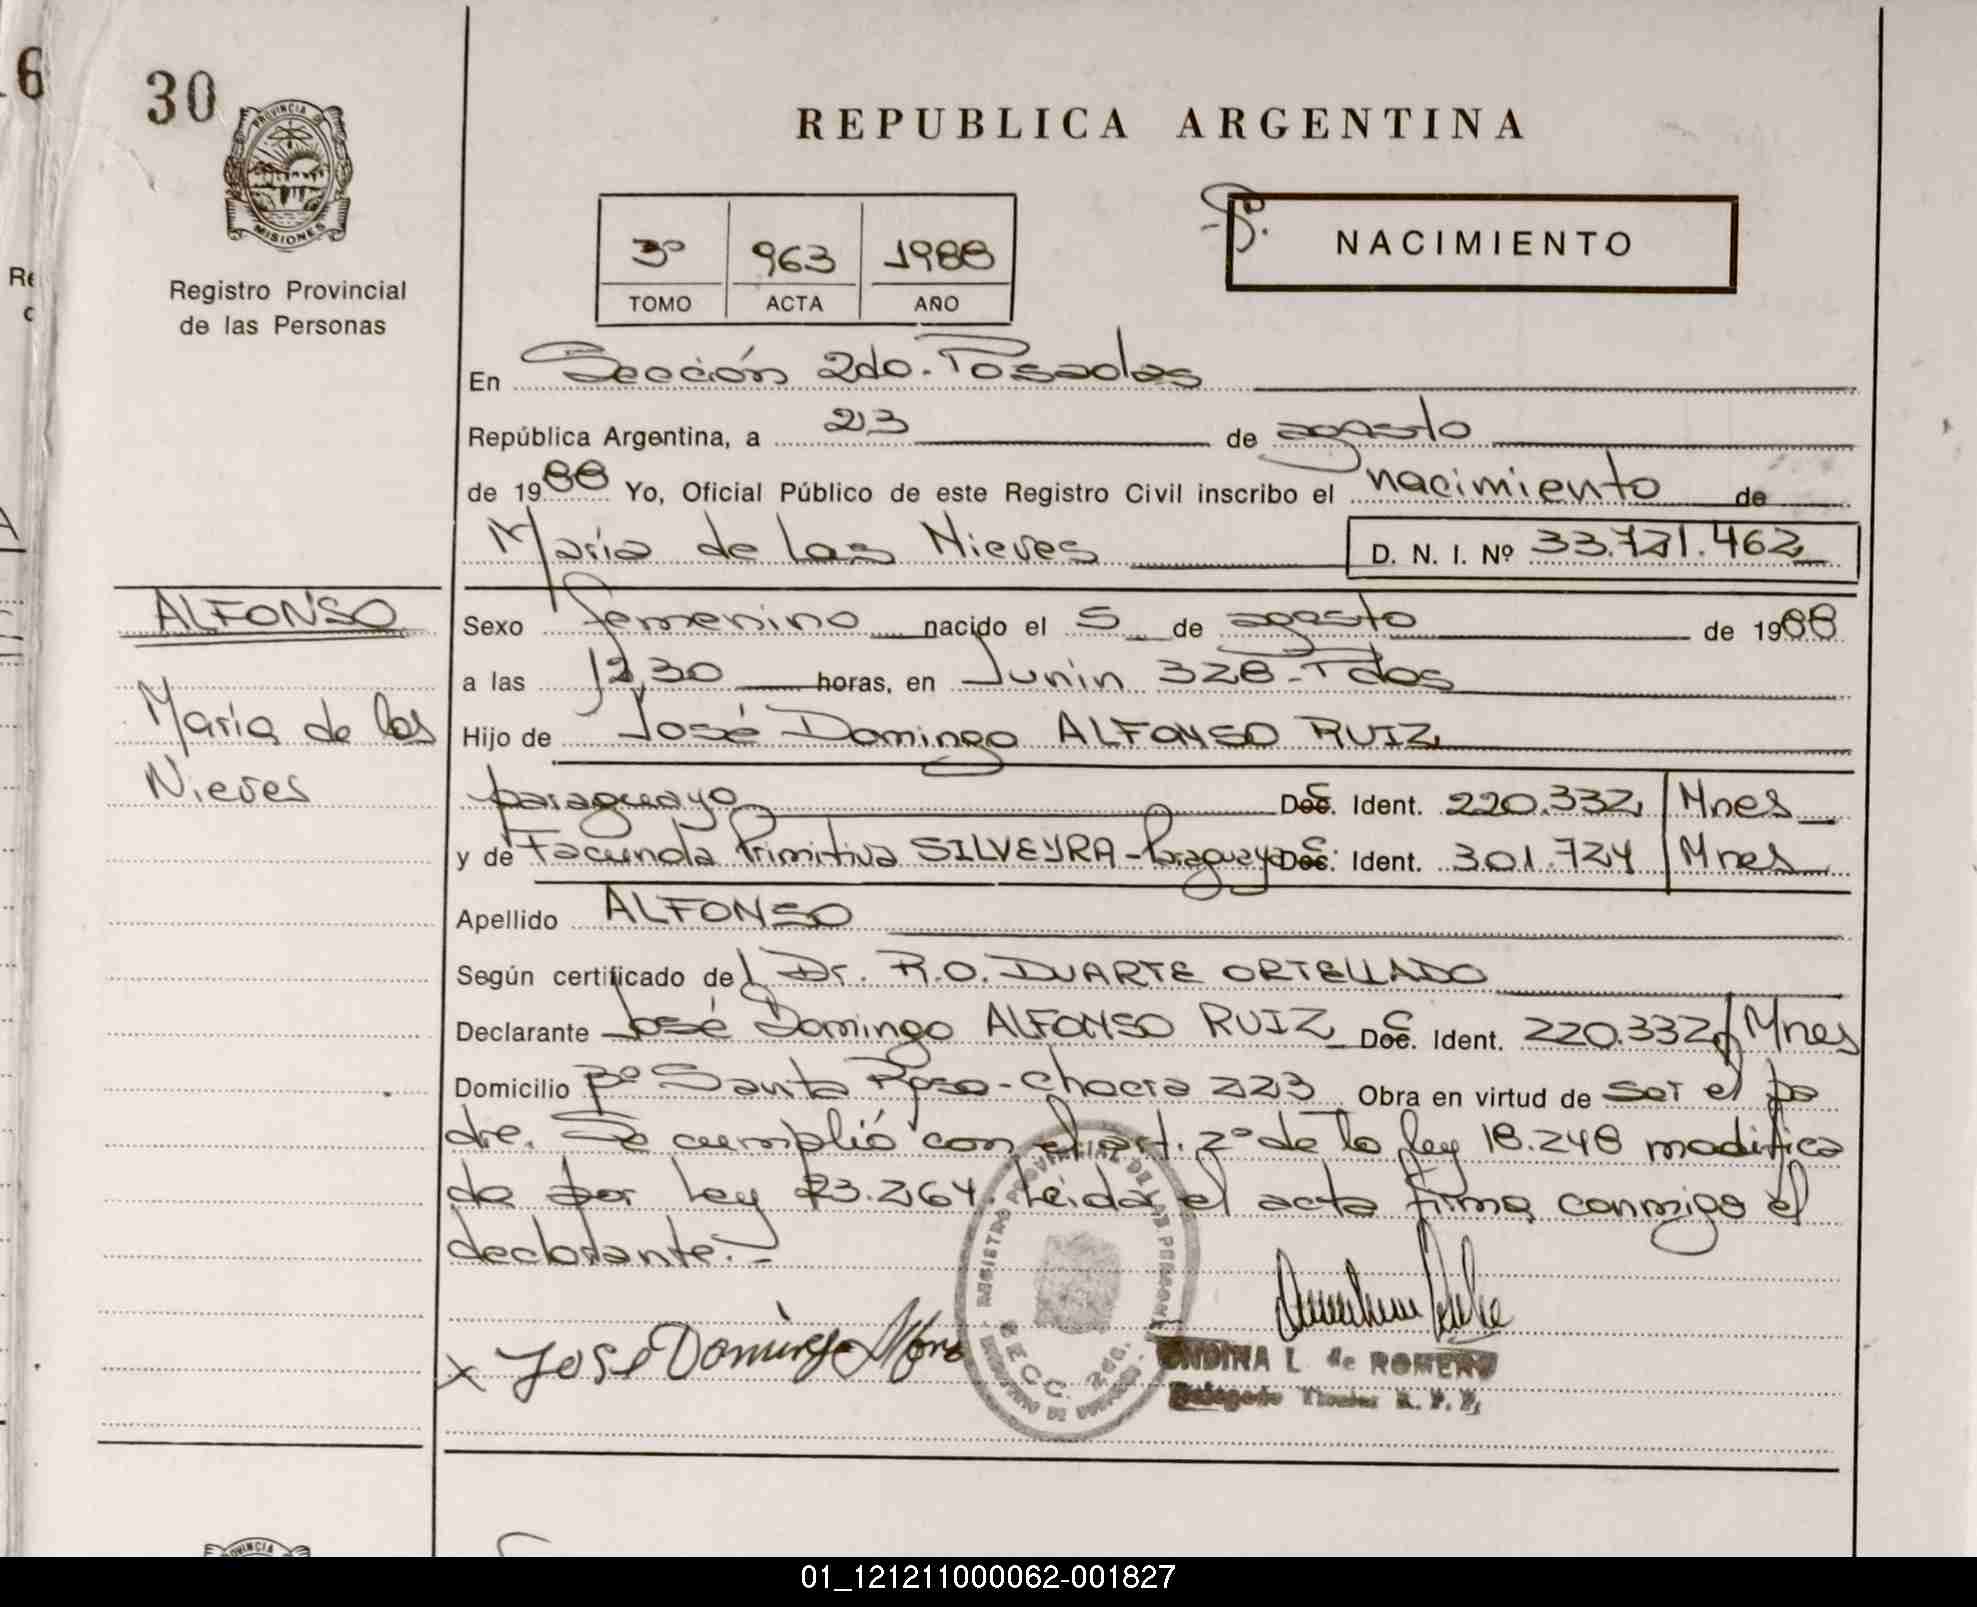 6
30
PROVINCIA D
MISIONES
Registro Provincial
de las Personas
REPUBLICA ARGENTINA
3º 963 1988
TOMO ACTA AÑO
NACIMIENTO
En Sección 2do. Posadas
República Argentina, a 23 de agosto
de 1988 Yo, Oficial Público de este Registro Civil inscribo el nacimiento de
María de las Nieves D. N. I. Nº 33.721.462
ALFONSO
María de las
Nieves
Sexo femenino nacido el 5 de agosto de 1988
a las 12,30 horas, en Junin 328-Pdas
Hijo de José Domingo ALFONSO RUIZ
paraguayo Doc. Ident. 220.332 / Mnes
y de Facunda Primitiva SILVEYRA-Paraguaya Doc. Ident. 301.724 / Mnes
Apellido ALFONSO
Según certificado del Dr. R.O. DUARTE ORTELLADO
Declarante José Domingo ALFONSO RUIZ Doc. Ident. 220.332 / Mnes
Domicilio Bº Santa Rosa-Chacra 223 Obra en virtud de ser el pa
dre. Se cumplió con el art. 2º de la ley 18.248 modifica
da por Ley 23.264. Leida el acta firma conmigo el
declarante.-
x JOSE Domingo
REGISTRO PROVINCIAL DE LAS PERSONAS
SECC. 2da.
ONDINA L de ROMERO
Delegado Titular R. P. P.
PROVINCIA
01_121211000062-001827